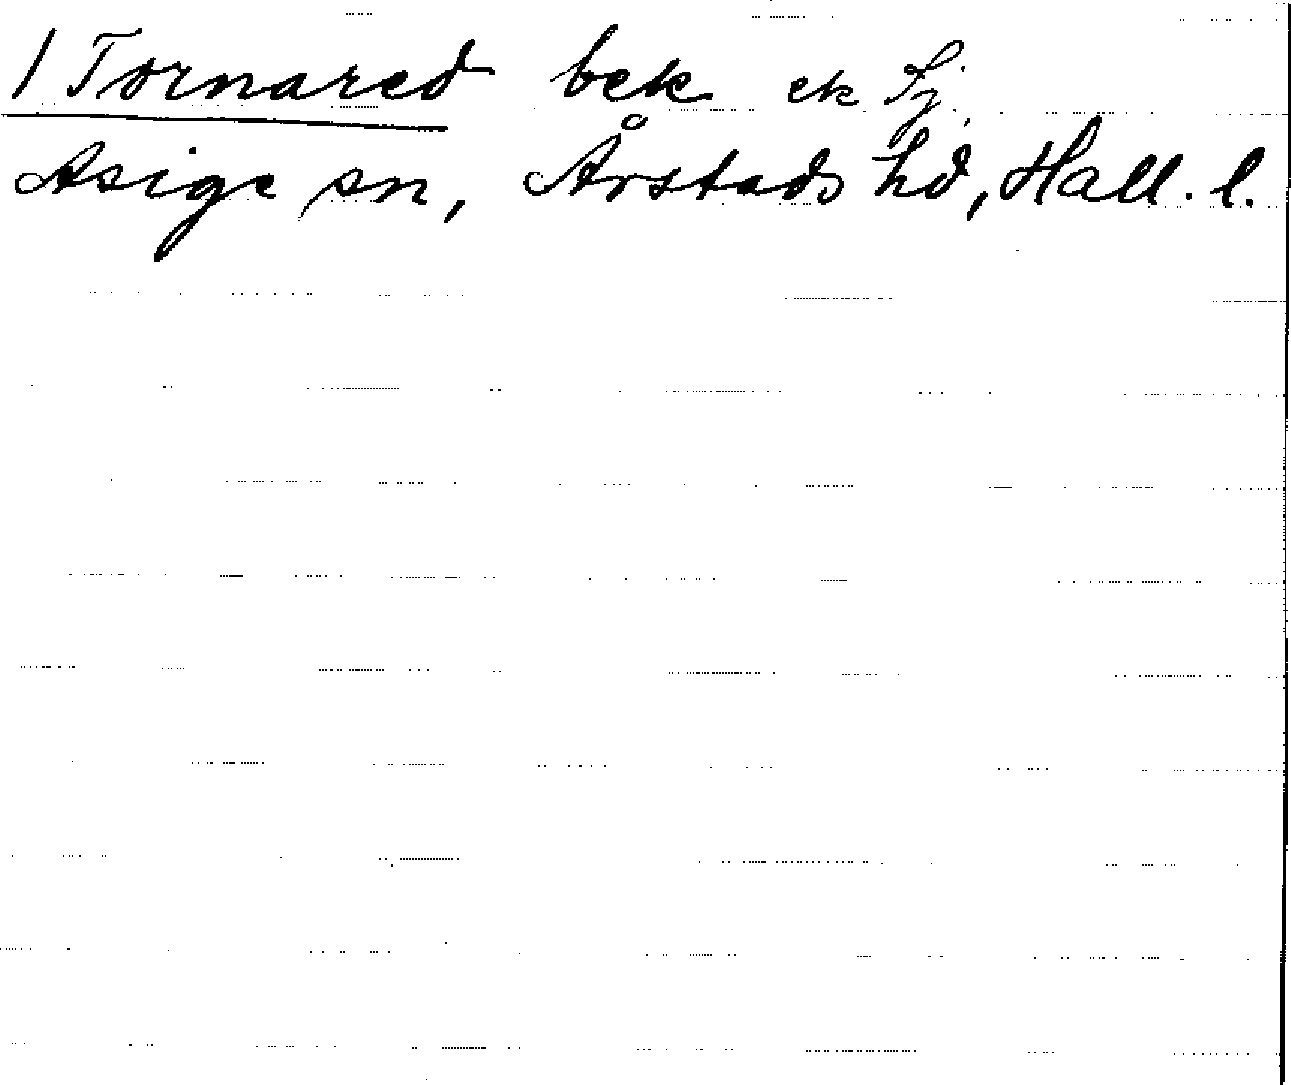 /Tornared bek ek Fj.
Asige sn, Årstads hd, Hall. l.